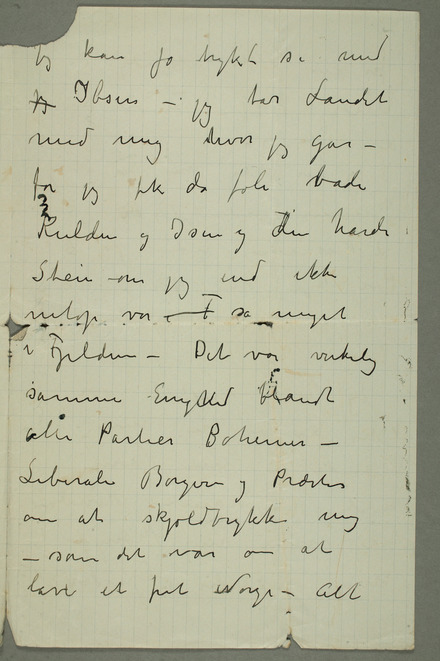 Jeg kan jo trykt si med
jeg Ibsen – jeg tar Landet
med mig hvor jeg går –
for jeg fik da føle både
Kulden og Isen og den hårde
Sten om jeg end ikke
netop var i F så meget
i Fjelden – Det var virkelig
samme Enighed blandt
alle Partier Bohemer –
Liberale Borgere og Præster
om at skjoldtrykke mig
– som det var om at
lave et frit Norge – Alt